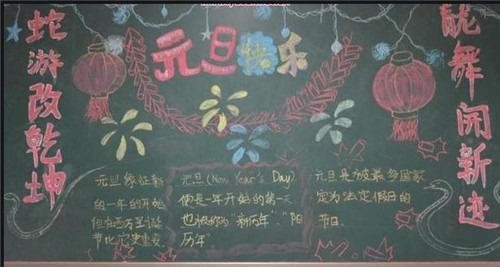 元旦快乐
蛇游改乾坤
元旦象征新
的一年的开始
但在西方圣诞
节比它更重要
元旦(New Year's Day)
便是一年开始的第一天
也被称为“新历年”“阳
历年。
元旦是被最多国家
定为法定假日的
节日.
龍舞開新迹